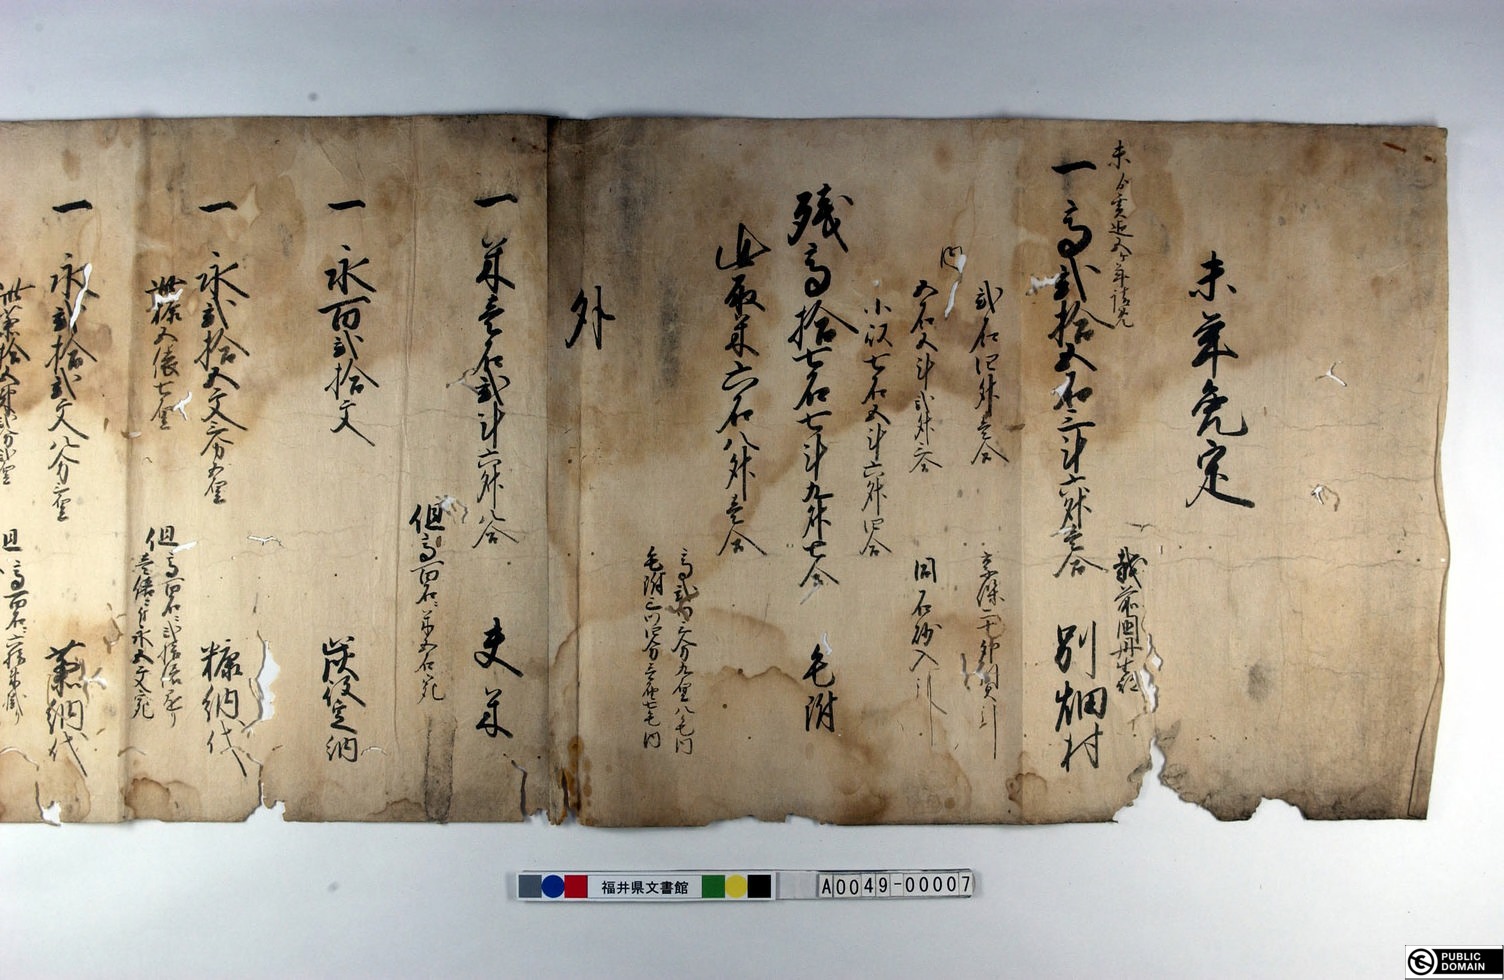 未年免定
越前国丹生郡
未ゟ亥迄五ヶ年請免
一高弐拾五石三斗六升壱合 別畑村
弐石四升壱合
内
五石五斗弐升三合 同石砂入引
小以七石五斗六升四合
残高拾七石七斗九升七合 毛附
此取米六石八升壱合
高弐ツ三分九厘八毛内
毛附三ツ四分壱厘七毛内
外
一米壱石弐斗六升八合 夫米
但高百石ニ米五石宛
一永百弐拾文 炭役定納
一永弐拾五文三分五厘 糠納代
此糠五俵七厘
但高百石ニ弐拾俵懸り
壱俵ニ付永五文宛
一永弐拾弐文八分三厘 藁納代
此藁拾五束弐分弐厘
但高百石ニ六拾束懸り
福井県文書館
A0049-00007
PUBLIC
DOMAIN